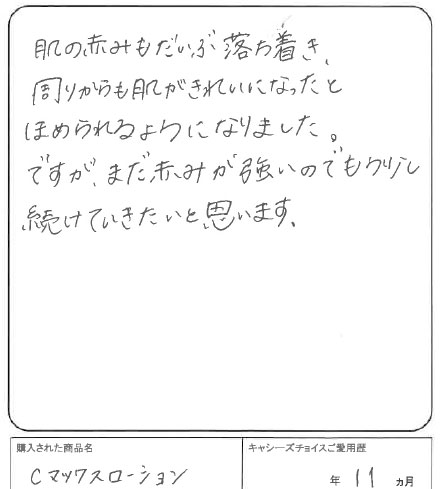 肌の赤みもだいぶ落ち着き、
周りからも肌がきれいになったと
ほめられるようになりました。
ですが、まだ赤みが強いのでもう少し
続けていきたいと思います。
購入された商品名
キャシーズチョイスご愛用歴
Cマックスローション
年 11 カ月